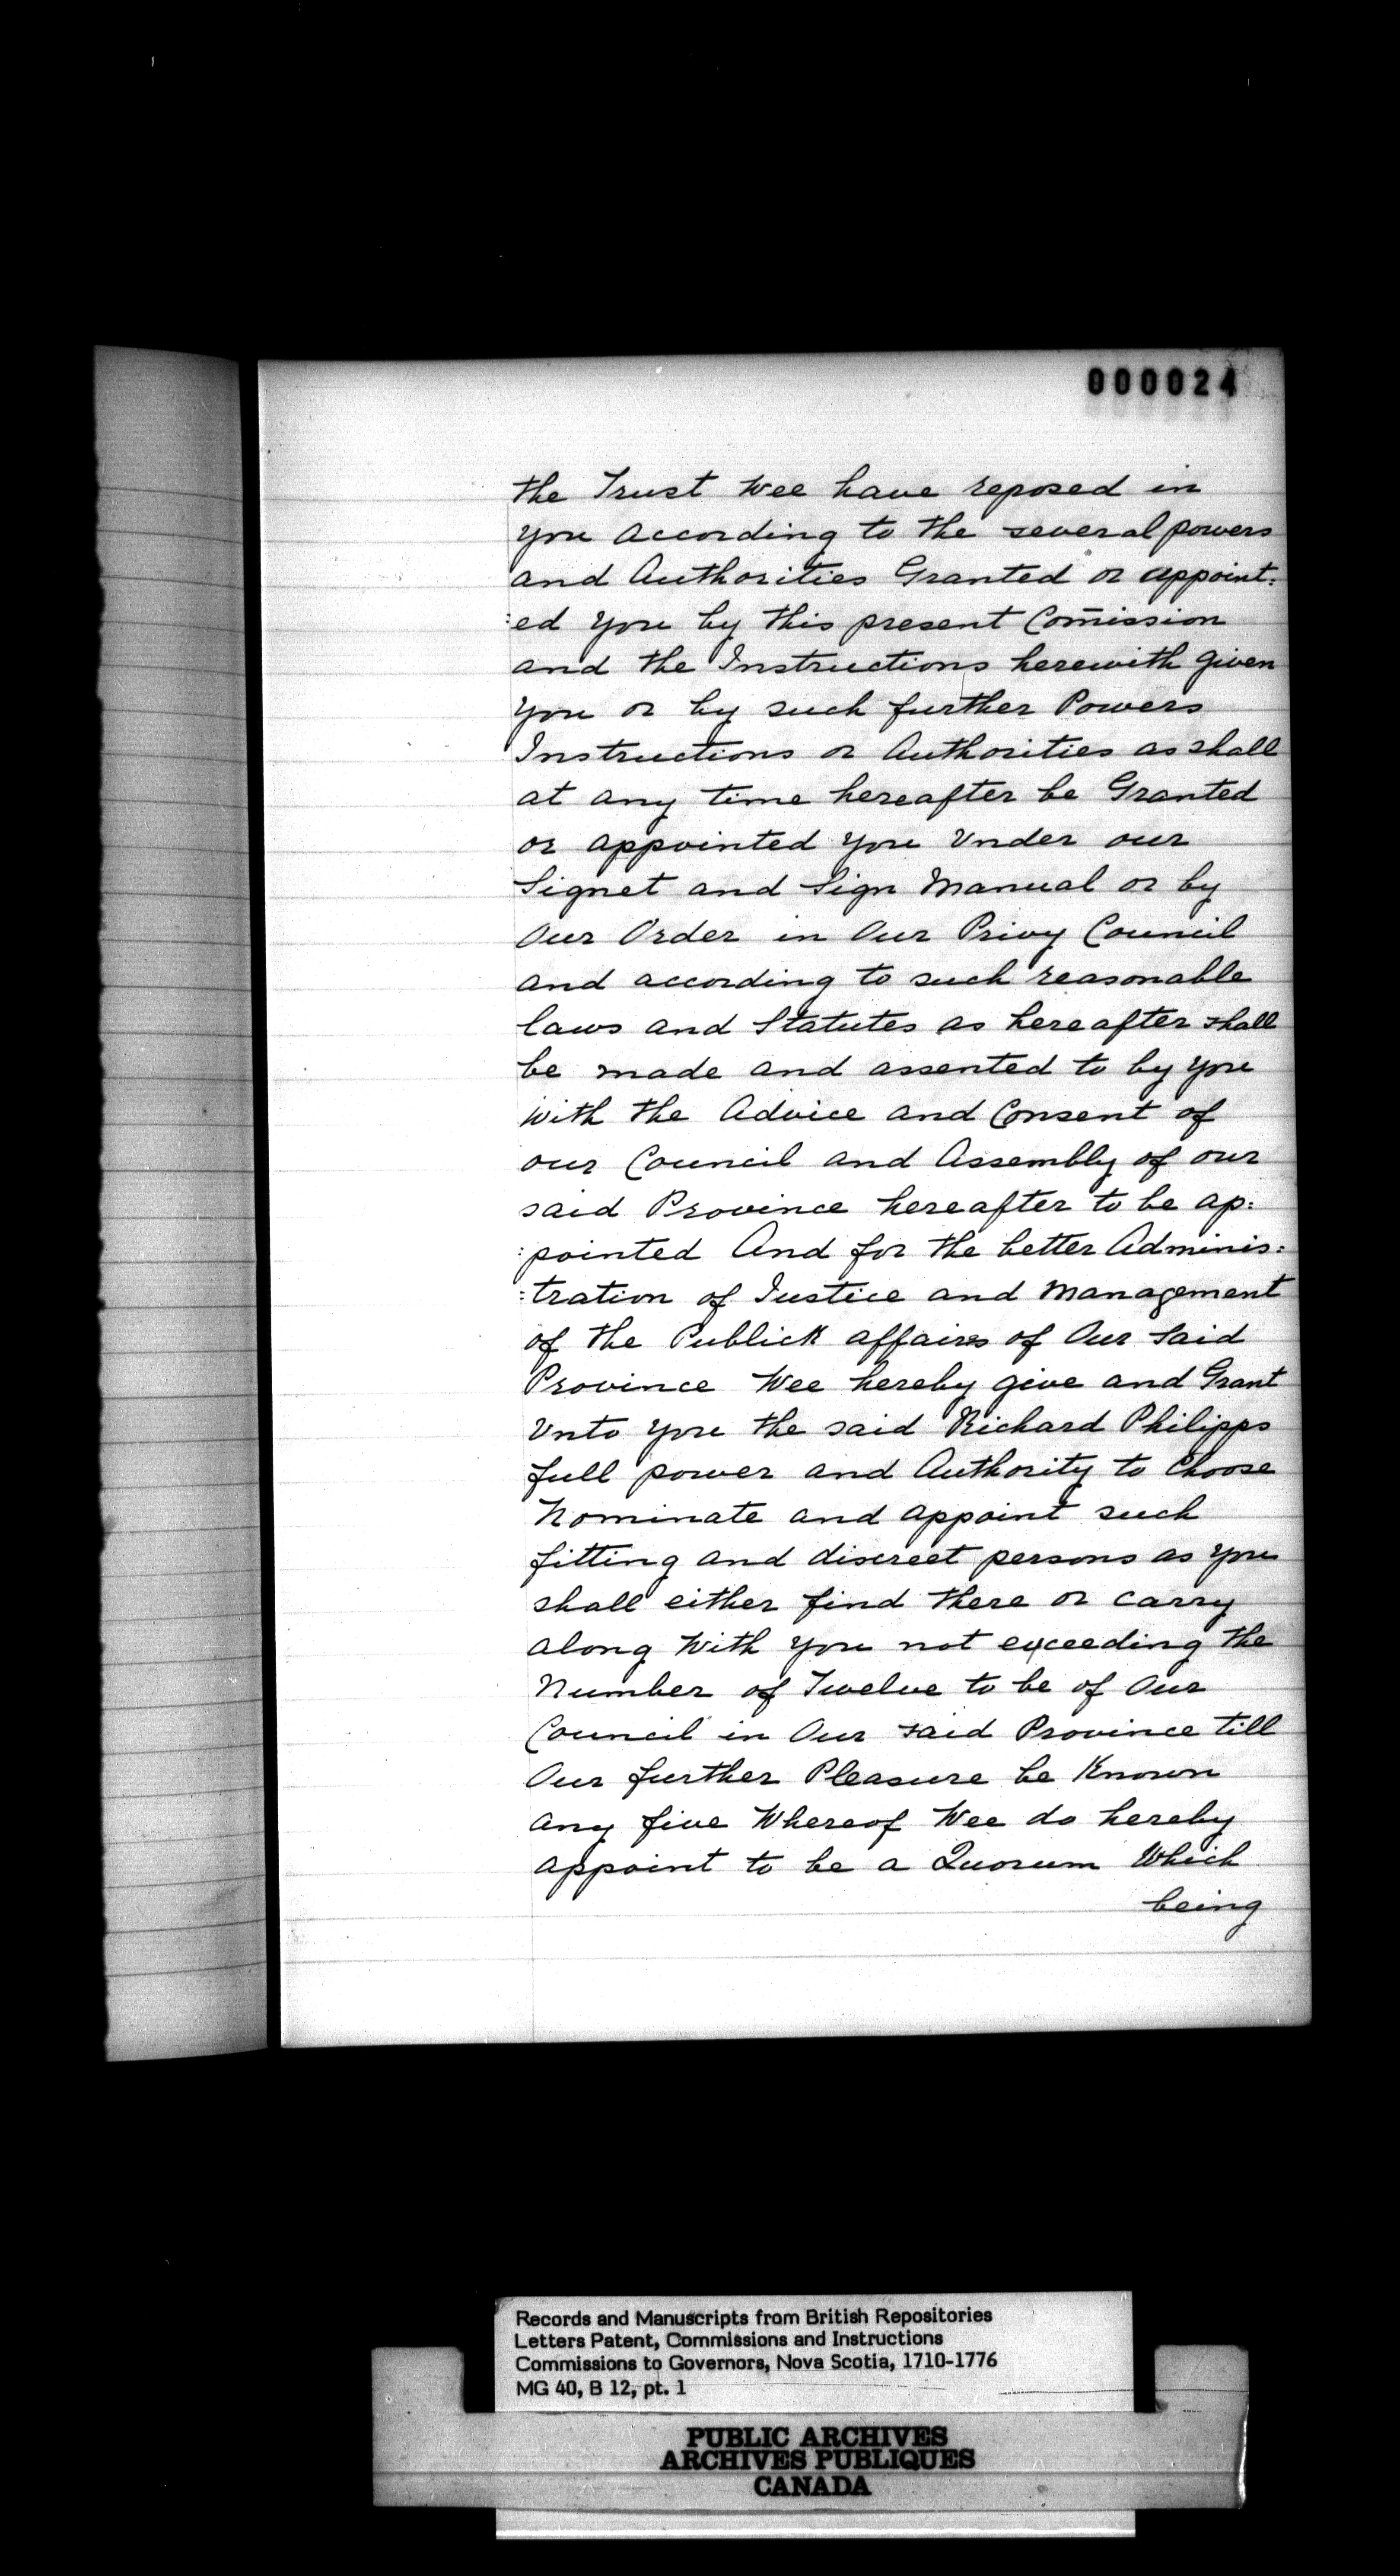 000024
the Trust Wee have reposed in
you according to the several powers
and Authorities Granted or appoint:
:ed you by this present Com̄ission
and the Instructions herewith given
you or by such further Powers
Instructions or Authorities as shall
at any time hereafter be Granted
or appointed you Vnder our
Signet and Sign Manual or by
Our Order in Our Privy Council
and according to such reasonable
laws and Statutes as hereafter shall
be made and assented to by you
with the Advice and Consent of
our Council and Assembly of our
said Province hereafter to be ap:
:pointed And for the better Adminis:
:tration of Justice and Management
of the Publick affaires of Our Said
Province Wee hereby give and Grant
Vnto you the said Richard Philipps
full power and Authority to Choose
Nominate and appoint such
fitting and discreet persons as you
shall either find there or carry
along With you not exceeding the
Number of Twelve to be of Our
Council in Our said Province till
Our further Pleasure be Known
any five Whereof Wee do hereby
appoint to be a Quorum Which
being
Records and Manuscripts from British Repositories
Letters Patent, Commissions and Instructions
Commissions to Governors, Nova Scotia, 1710-1776
MG 40, B 12, pt. 1
PUBLIC ARCHIVES
ARCHIVES PUBLIQUES
CANADA